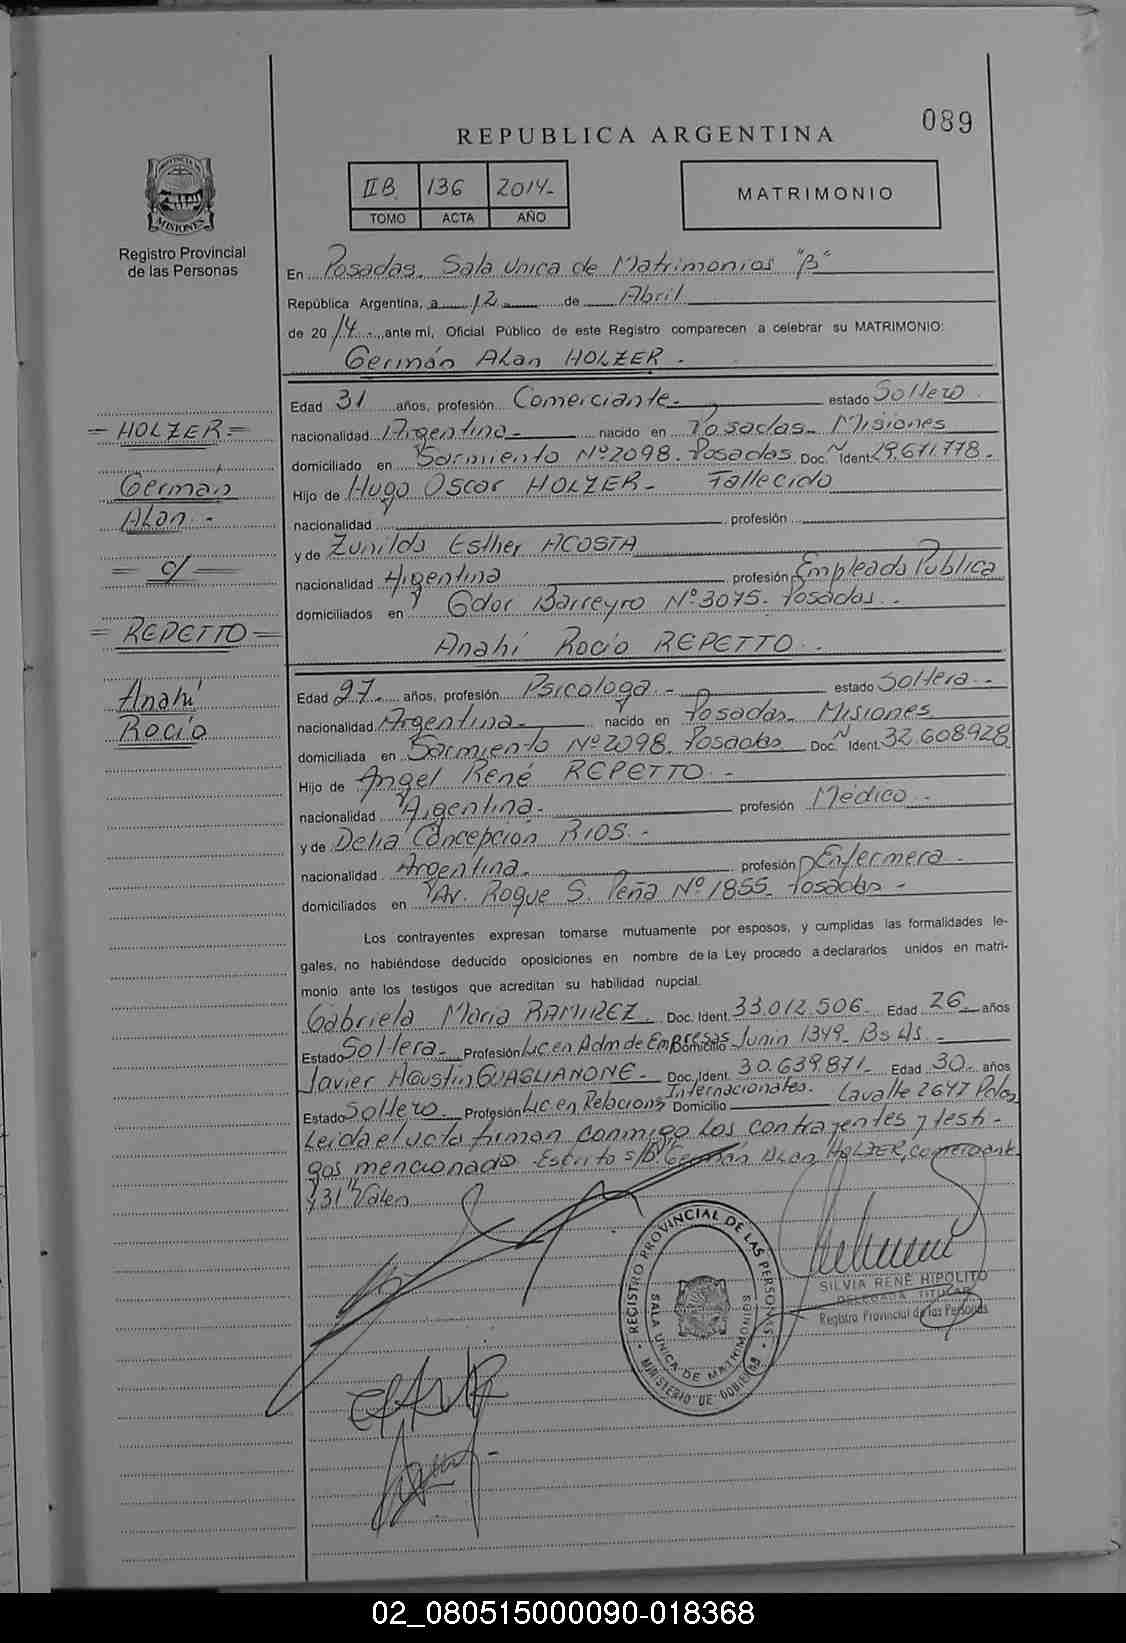 089
REPUBLICA ARGENTINA
IIB 136 2014-
TOMO ACTA AÑO
MATRIMONIO
PROVINCIA DE MISIONES
Registro Provincial
de las Personas
En Posadas. Sala Unica de Matrimonios "B"
República Argentina, a 12 de Abril
de 2014.-, ante mí, Oficial Público de este Registro comparecen a celebrar su MATRIMONIO:
Germán Alan HOLZER.-
Edad 31 años, profesión Comerciante.- estado Soltero.
nacionalidad Argentina.- nacido en Posadas- Misiones
domiciliado en Sarmiento Nº2098. Posadas. Doc. Nº Ident. 29.671.778.-
Hijo de Hugo Oscar HOLZER- Fallecido
nacionalidad profesión
y de Zunilda Esther ACOSTA
nacionalidad Argentina profesión Empleada Publica
domiciliados en Gdor Barreyro Nº3075. Posadas.-
Anahí Rocío REPETTO.-
Edad 27.- años, profesión Psicologa.- estado Soltera.-
nacionalidad Argentina.- nacido en Posadas- Misiones
domiciliada en Sarmiento Nº2098. Posadas Doc. Nº Ident. 32.608928
Hijo de Angel René REPETTO.-
nacionalidad Argentina.- profesión Médico.-
y de Delia Concepción RIOS.-
nacionalidad Argentina.- profesión Enfermera.-
domiciliados en Av. Roque S. Peña Nº1855- Posadas.-
Los contrayentes expresan tomarse mutuamente por esposos, y cumplidas las formalidades le-
gales, no habiéndose deducido oposiciones en nombre de la Ley procedo a declararlos unidos en matri-
monio ante los testigos que acreditan su habilidad nupcial.
Gabriela María RAMIREZ. Doc. Ident. 33.012.506. Edad 26 años
Estado Soltera- Profesión Lic en Adm de Empresas Domicilio Junin 1349- Bs As.-
Javier Agustín GUAGLIANONE- Doc. Ident. 30.639.871- Edad 30 años
Estado Soltero. Profesión Lic en Relacions Internacionales. Domicilio Lavalle 2647 Pdas
Leida el acta firman conmigo los contrayentes y testi-
gos mencionado. Escrito s/b "Germán Alan HOLZER, comerciante
y 31" Valen
= HOLZER =
Germán
Alan.-
= c/ =
= REPETTO =
Anahí
Rocío
REGISTRO PROVINCIAL DE LAS PERSONAS
SALA UNICA DE MATRIMONIOS
MINISTERIO DE GOBIERNO
SILVIA RENE HIPOLITO
DELEGADA TITULAR
Registro Provincial de las Personas
02_080515000090-018368